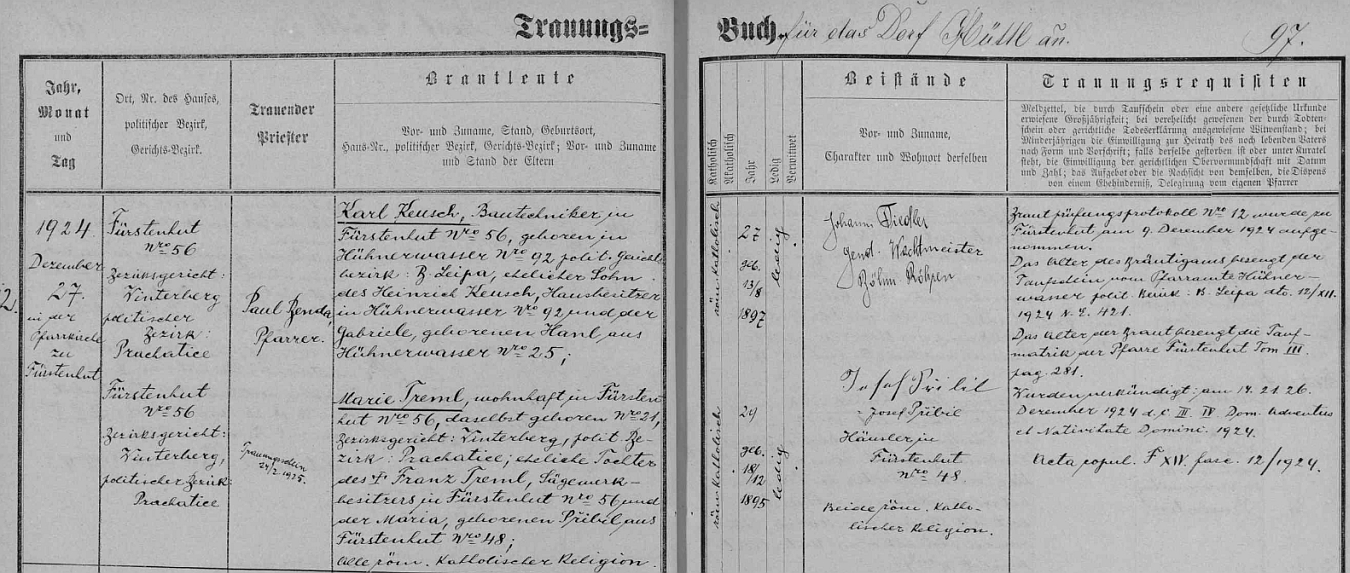 Trauungs=
Buch für das Dorf Hüttl an.
97.
Jahr,
Monat
und
Tag
Ort, Nr. des Hauses,
politischer Bezirk,
Gerichts-Bezirk.
Trauender
Priester
Brautleute
Vor- und Zuname, Stand, Geburtsort,
Haus-Nr., politischer Bezirk, Gerichts-Bezirk; Vor- und Zuname
und Stand der Eltern
Katholisch
Akatholisch
Jahr
Ledig
Verwitwet
Beistände
Vor- und Zuname,
Charakter und Wohnort derselben
Trauungsrequisiten
Meldzettel, die durch Taufschein oder eine andere gesetzliche Urkunde
erwiesene Großjährigkeit; bei verehelicht gewesenen der durch Todten-
schein oder gerichtliche Todeserklärung ausgewiesene Witwenstand; bei
Minderjährigen die Einwilligung zur Heirath des noch lebenden Vaters
nach Form und Vorschrift; falls derselbe gestorben ist oder unter Kuratel
steht, die Einwilligung der gerichtlichen Obervormundschaft mit Datum
und Zahl; das Aufgebot oder die Nachsicht von demselben, die Dispens
von einem Ehehinderniß, Delegirung vom eigenen Pfarrer
2.
1924
Dezember
27.
in der
Pfarrkirche
zu
Fürstenhut
Fürstenhut
Nro 56
Bezirksgericht:
Winterberg
politischer
Bezirk:
Prachatice
Fürstenhut
Nro 56
Bezirksgericht:
Winterberg,
politischer Bezirk:
Prachatice
Paul Benda,
Pfarrer.
Trauungsschein
Karl Keusch, Bautechniker in
Fürstenhut Nro 56, geboren in
Hühnerwasser Nro 92 polit.
bezirk: B. Leipa, ehelicher Sohn
des Heinrich Keusch, Hausbesitzer
in Hühnerwasser Nro 92 und der
Gabriele, geborenen Hanl, aus
Hühnerwasser Nro 25;
Marie Treml, wohnhaft in Fürsten-
hut Nro 56, daselbst geboren Nro 21,
Bezirksgericht: Winterberg, polit. Be-
zirk: Prachatice; eheliche Tochter
des † Franz Treml, Sägewerk-
besitzers in Fürstenhut Nro 56 und
der Maria, geborenen Přibil aus
Fürstenhut Nro 48;
Alle röm. katholischer Religion.
röm. katholisch
27
geb.
13/8
1897
ledig
röm. katholisch
29
geb.
18/12
1895
ledig
Johann Fiedler
Gend. Wachtmeister
Böhm. Röhren
Josef Pribil
Josef Přibil
Häusler in
Fürstenhut
Nro 48.
Beide röm. katho-
lischer Religion.
Brautprüfungsprotokoll Nro 12 wurde zu
Fürstenhut am 9. Dezember 1924 aufge-
nommen.
Das Alter des Bräutigams bezeugt der
Taufschein vom Pfarramte Hühner-
wasser polit. Bezirk: B. Leipa dto. 12/XII.
1924 N. E. 421.
Das Alter der Braut bezeugt die Tauf-
matrik der Pfarre Fürstenhut Tom III.
pag. 281.
Wurden verkündigt: am 14. 21. 26.
Dezember 1924 d. i. III. IV. Dom. Adventus
et Nativitate Domini. 1924.
Acta copul. F XIV. fasc. 12/1924.